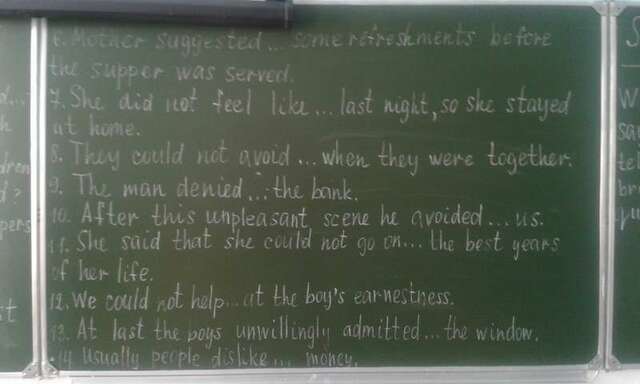 6. Mother suggested... some refreshments before
the supper was served.
7. She did not feel like... last night, so she stayed
at home.
8. They could not avoid... when they were together.
9. The man denied... the bank.
10. After this unpleasant scene he avoided... us.
11. She said that she could not go on... the best years
of her life.
12. We could not help... at the boy's earnestness.
13. At last the boys unwillingly admitted... the window.
14. Usually people dislike... money.